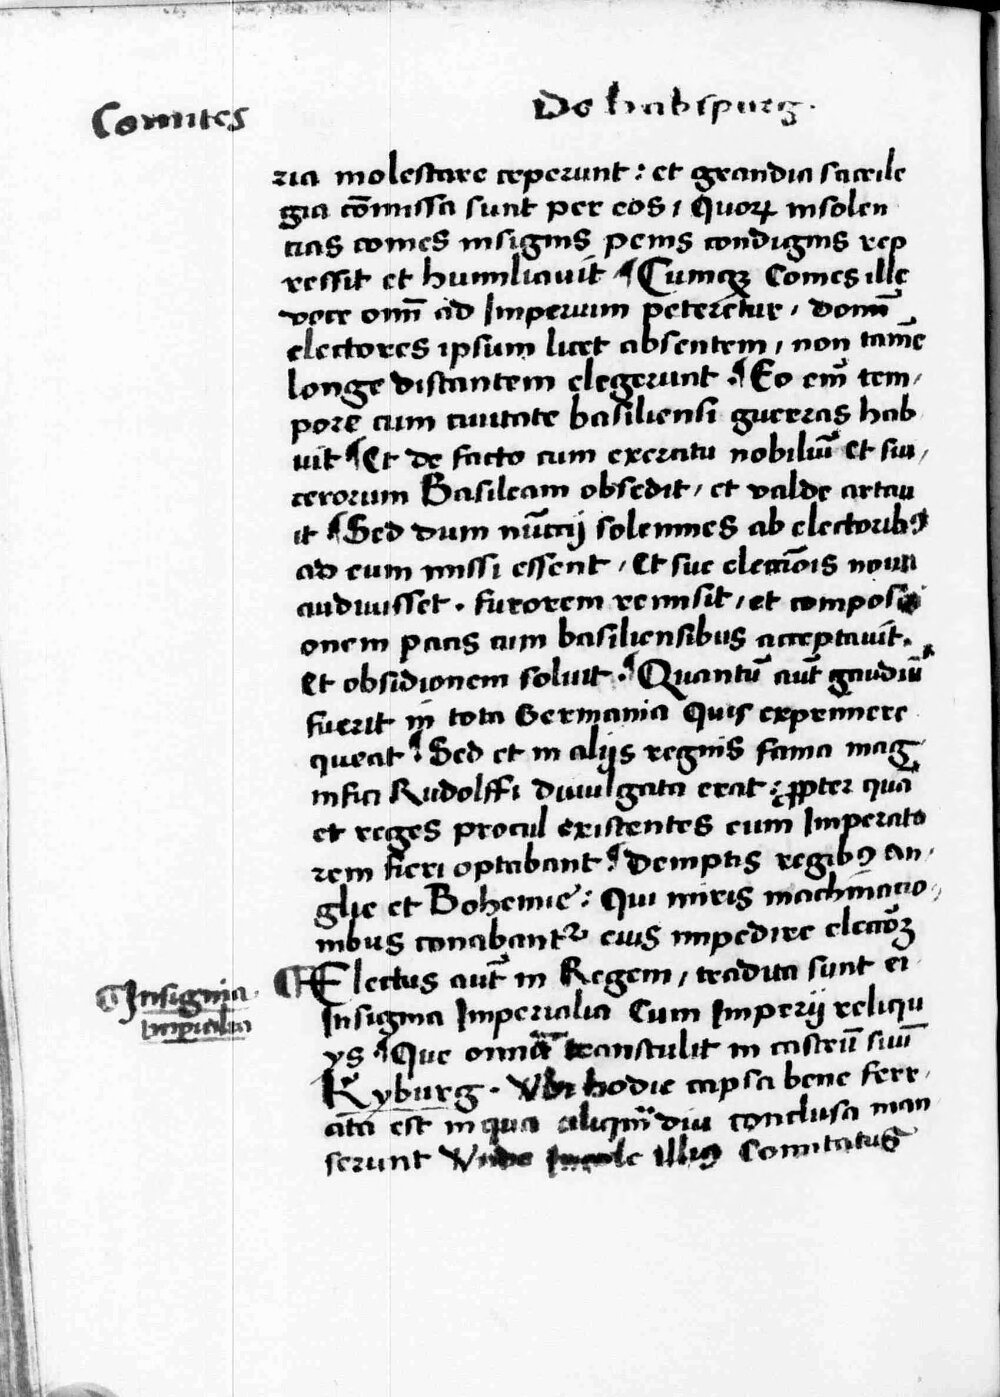 Comites
De habspurg.
ria molestare ceperunt : et grandia sacrile
gia cōmissa sunt per eos / Quoꝝ insolen
cias comes insignis penis condignis rep
ressit et humiliauit ¶ Cumqꝫ Comes ille
voce om̄i ad Imperium peteretur / domī
electores ipsum licet absentem / non tamē
longe distantem elegerunt . ¶ Eo em̄ tem /
pore cum ciuitate basiliensi guerras hab
uit ¶ Et de facto cum exercitu nobiliū et sui /
cerorum Basileam obsedit / et valde artau
it ¶ Sed dum nūccij solemnes ab electoribꝰ
ad eum missi essent / Et sue elecciōis noua
audiuisset . furorem remisit / et composici
onem pacis cum basiliensibus acceptauit .
Et obsidionem soluit . ¶ Quantū aūt gaudiū
fuerit in tota Germania Quis exprimere
queat ¶ Sed et in alijs regnis fama mag
nifici Rudolffi diuulgata erat : ꝓpter quā
et reges procul existentes eum Imperato
rem fieri optabant ¶ Demptis regibꝰ An /
glie et Bohemie : Qui miris machinacio /
nibus conabantᷣ eius impedire eleccōꝫ
¶ Electus aūt in Regem / tradita sunt ei
¶ Insignia
Imperialia
Insignia Imperialia Cum Imperij reliqu
ys ¶ Que omnia transtulit in castrū suū
Kyburg . Vbi hodie capsa bene ferr /
ata est in qua aliqm̄ diu conclusa man
serunt Vnde Incole illiꝰ Comitatus